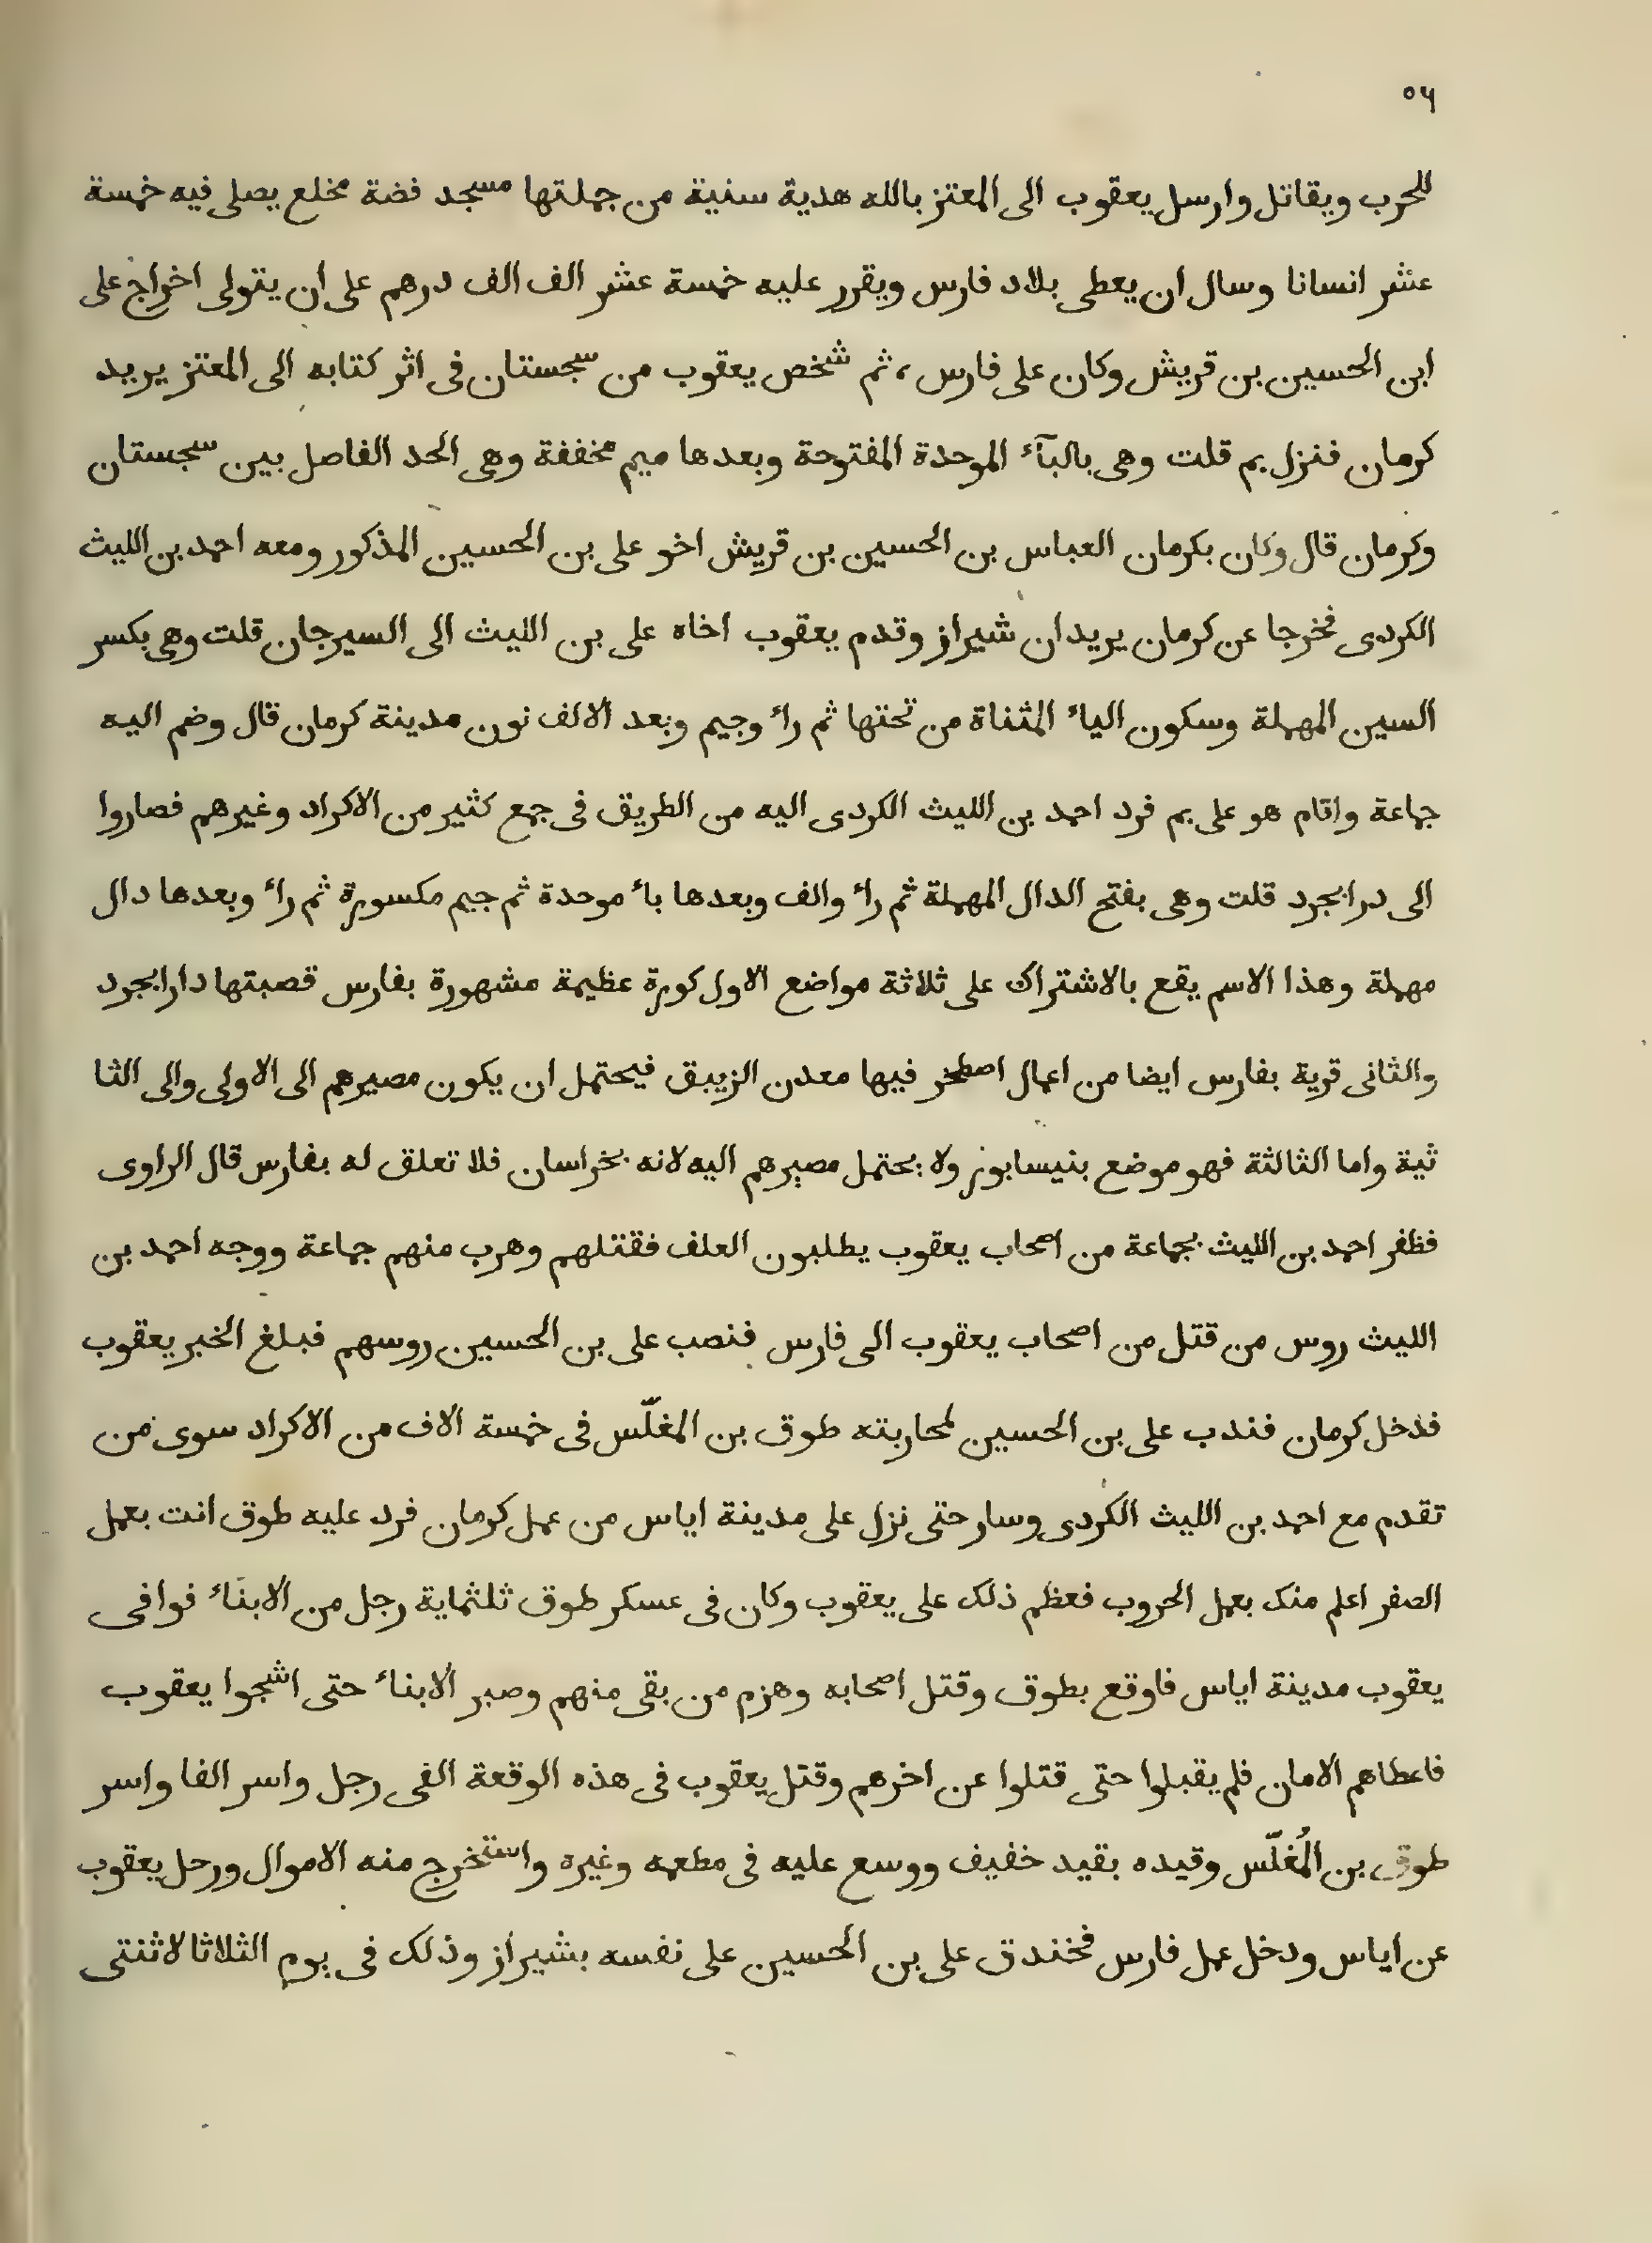 ٥٦
للحرب ويقاتل وارسل يعقوب الى المعتز بالله هدية سنية من جملتها مسجد فضة مخلع يصلى فيه خمسة
عشر انسانا وسال ان يعطى بلاد فارس ويقرر عليه خمسة عشر الف الف درهم على ان يتولى اخراج على
ابن الحسين بن قريش وكان على فارس، ثم شخص يعقوب من سجستان فى اثر كتابه الى المعتز يريد
كرمان فنزل بم قلت وهى بالبآء الموحدة المفتوحة وبعدها ميم مخففة وهى الحد الفاصل بين سجستان
وكرمان قال وكان بكرمان العباس بن الحسين بن قريش اخو على بن الحسين المذكور ومعه احمد بن الليث
الكردى فخرجا عن كرمان يريدان شيراز وقدم يعقوب اخاه على بن الليث الى السيرجان قلت وهى بكسر
السين المهملة وسكون الياء المثناة من تحتها ثم راء وجيم وبعد الالف نون مدينة كرمان قال وضم اليه
جماعة واقام هو على بم فرد احمد بن الليث الكردى اليه من الطريق فى جمع كثير من الاكراد وغيرهم فصاروا
الى درابجرد قلت وهى بفتح الدال المهملة ثم راء والف وبعدها باء موحدة ثم جيم مكسورة ثم راء وبعدها دال
مهملة وهذا الاسم يقع بالاشتراك على ثلاثة مواضع الاول كورة عظيمة مشهورة بفارس قصبتها دارابجرد
والثانى قرية بفارس ايضا من اعمال اصطخر فيها معدن الزيبق فيحتمل ان يكون مصيرهم الى الاولى والى الثا
ثية واما الثالثة فهو موضع بنيسابور ولا يحتمل مصيرهم اليه لانه بخراسان فلا تعلق له بفارس قال الراوى
فظفر احمد بن الليث بجماعة من اصحاب يعقوب يطلبون العلف فقتلهم وهرب منهم جماعة ووجه احمد بن
الليث روس من قتل من اصحاب يعقوب الى فارس فنصب على بن الحسين روسهم فبلغ الخبر يعقوب
فدخل كرمان فندب على بن الحسين لمحاربته طوق بن المغلّس فى خمسة الاف من الاكراد سوى من
تقدم مع احمد بن الليث الكردى وسار حتى نزل على مدينة اياس من عمل كرمان فرد عليه طوق انت بعمل
الصفر اعلم منك بعمل الحروب فعظم ذلك على يعقوب وكان فى عسكر طوق ثلثماية رجل من الابناء فوافى
يعقوب مدينة اياس فاوقع بطوق وقتل اصحابه وهزم من بقى منهم وصبر الابناء حتى اشجوا يعقوب
فاعطاهم الامان فلم يقبلوا حتى قتلوا عن اخرهم وقتل يعقوب فى هذه الوقعة الفى رجل واسر الفا واسر
طوق بن المُغلّس وقيده بقيد خفيف ووسع عليه فى مطعمه وغيره واستخرج منه الاموال ورحل يعقوب
عن اياس ودخل عمل فارس فخندق على بن الحسين على نفسه بشيراز وذلك فى يوم الثلاثا لاثنتى